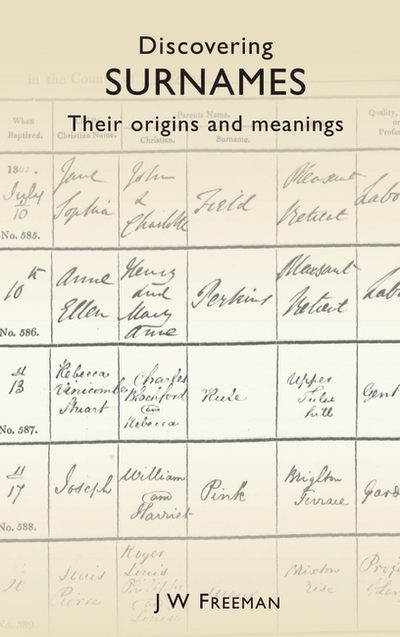 Discovering
SURNAMES
Their origins and meanings
in the Coun
When Baptized.
Christian Name.
Parents Name.
Christian.
Surname.
Quality,
Profe
1842.
July
10
No. 585.
Jane
Sophia
John
&
Charlotte
Field
Pleasant
Retreat
Labo
10th
No. 586.
Anne
Ellen
Henry
and
Mary
Anne
Perkins
Pleasant
Retreat
Lab
13
No. 587.
Rebecca
Stuart
Charles
Blachford
and
Rebecca
Upper
Tulse
hill
Gent
17
No. 588.
Joseph
William
and
Harriet
Pink
Brighton
Terrace
Gard
20
Louis
Pierre
Roger
Louis
Brixton
Rise
J W FREEMAN